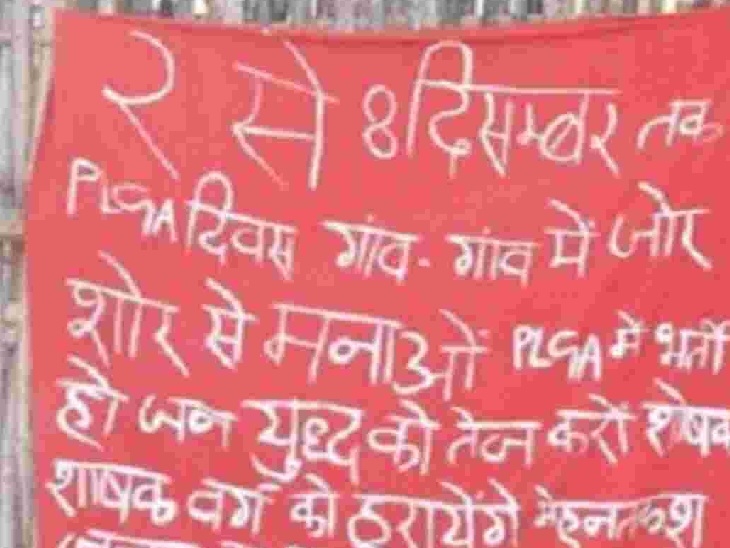 २ से 8 दिसम्बर तक
PLGA दिवस गांव-गांव में जोर
शोर से मनाओं PLGA में भर्ती
हो जन युद्ध को तेज करों शोषक
शाषक वर्ग को ठरायेंगे मेहनतकश